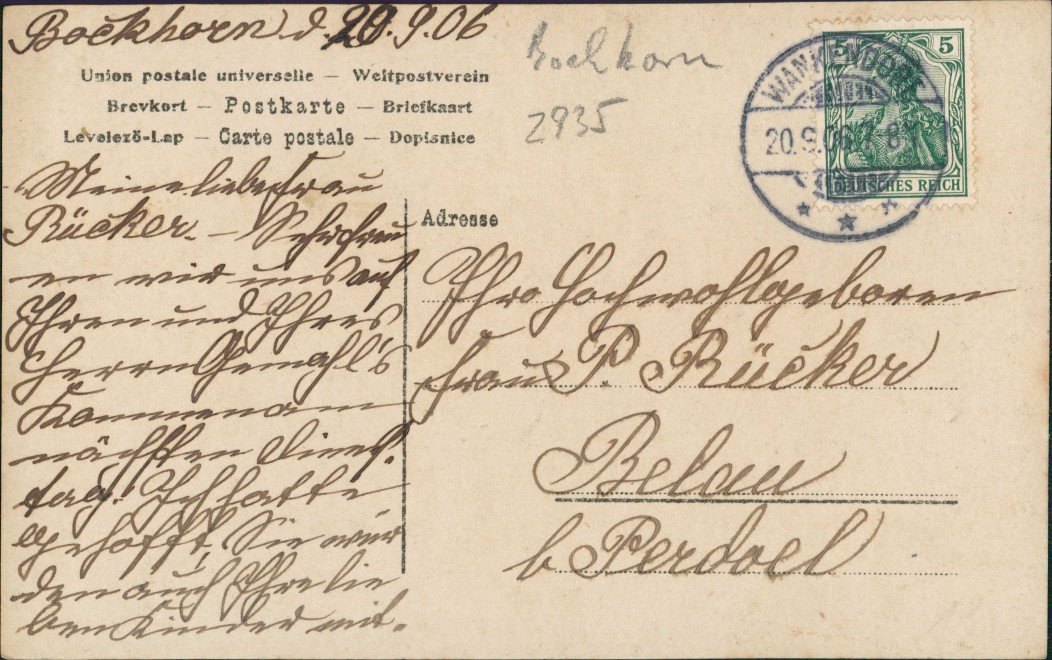 Bockhorn d. 20.9.06
Bockhorn
2935
Union postale universelle — Weltpostverein
Brevkort — Postkarte — Briefkaart
Levelezö-Lap — Carte postale — Dopisnice
5 5
DEUTSCHES REICH
WANKENDORF
20.9.06.7-8V.
Meine liebe Frau
Rücker. — Sehr freu
en wir uns auf
Ihren und Ihres
Herrn Gemahl's
Kommen am
nächsten Diens-
tag. Ich hatte
gehofft, Sie wür
den auch Ihre lie
ben Kinder mit-
Adresse
Ihro Hochwohlgeboren
Frau P. Rücker
Belau
b Perdoel